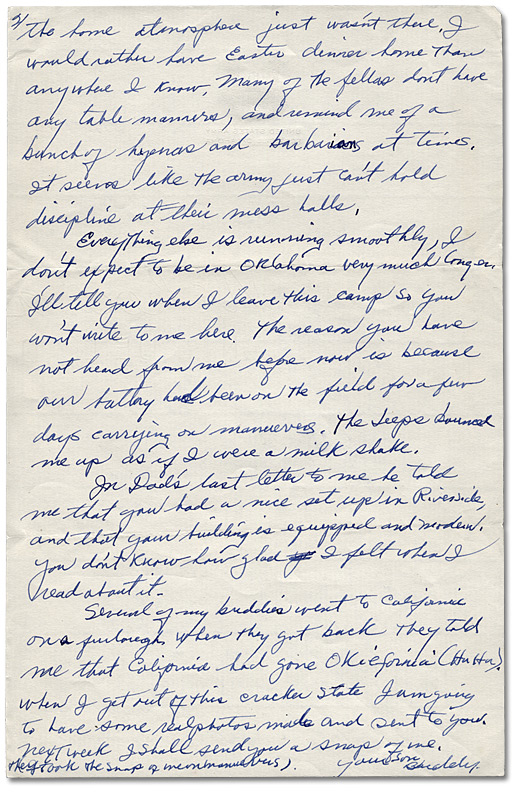 2/ the home atmosphere just wasn't there. I
would rather have Easter dinner home than
anywhere I know. Many of the fellas don't have
any table manners, and remind me of a
bunch of hyenas and barbarians at times.
It seems like the army just can't hold
discipline at their mess halls.
Everything else is running smoothly, I
don't expect to be in Oklahoma very much longer.
I'll tell you when I leave this camp so you
won't write to me here. The reason you have
not heard from me before now is because
our battery had been on the field for a few
days carrying on manuevers. The Jeeps bounced
me up as if I were a milk shake.
In Dad's last letter to me he told
me that you had a nice set up in Riverside,
and that your building is equipped and modern.
You don't know how glad I felt when I
read about it.
Several of my buddies went to California
on a furlough. When they got back they told
me that California had gone OKiefornia (Ha Ha).
When I get out of this cracker state I am going
to have some real photos made and sent to you.
Next week I shall send you a snap of me.
(They took the snap of me on manuevers).
Your son Buddy.